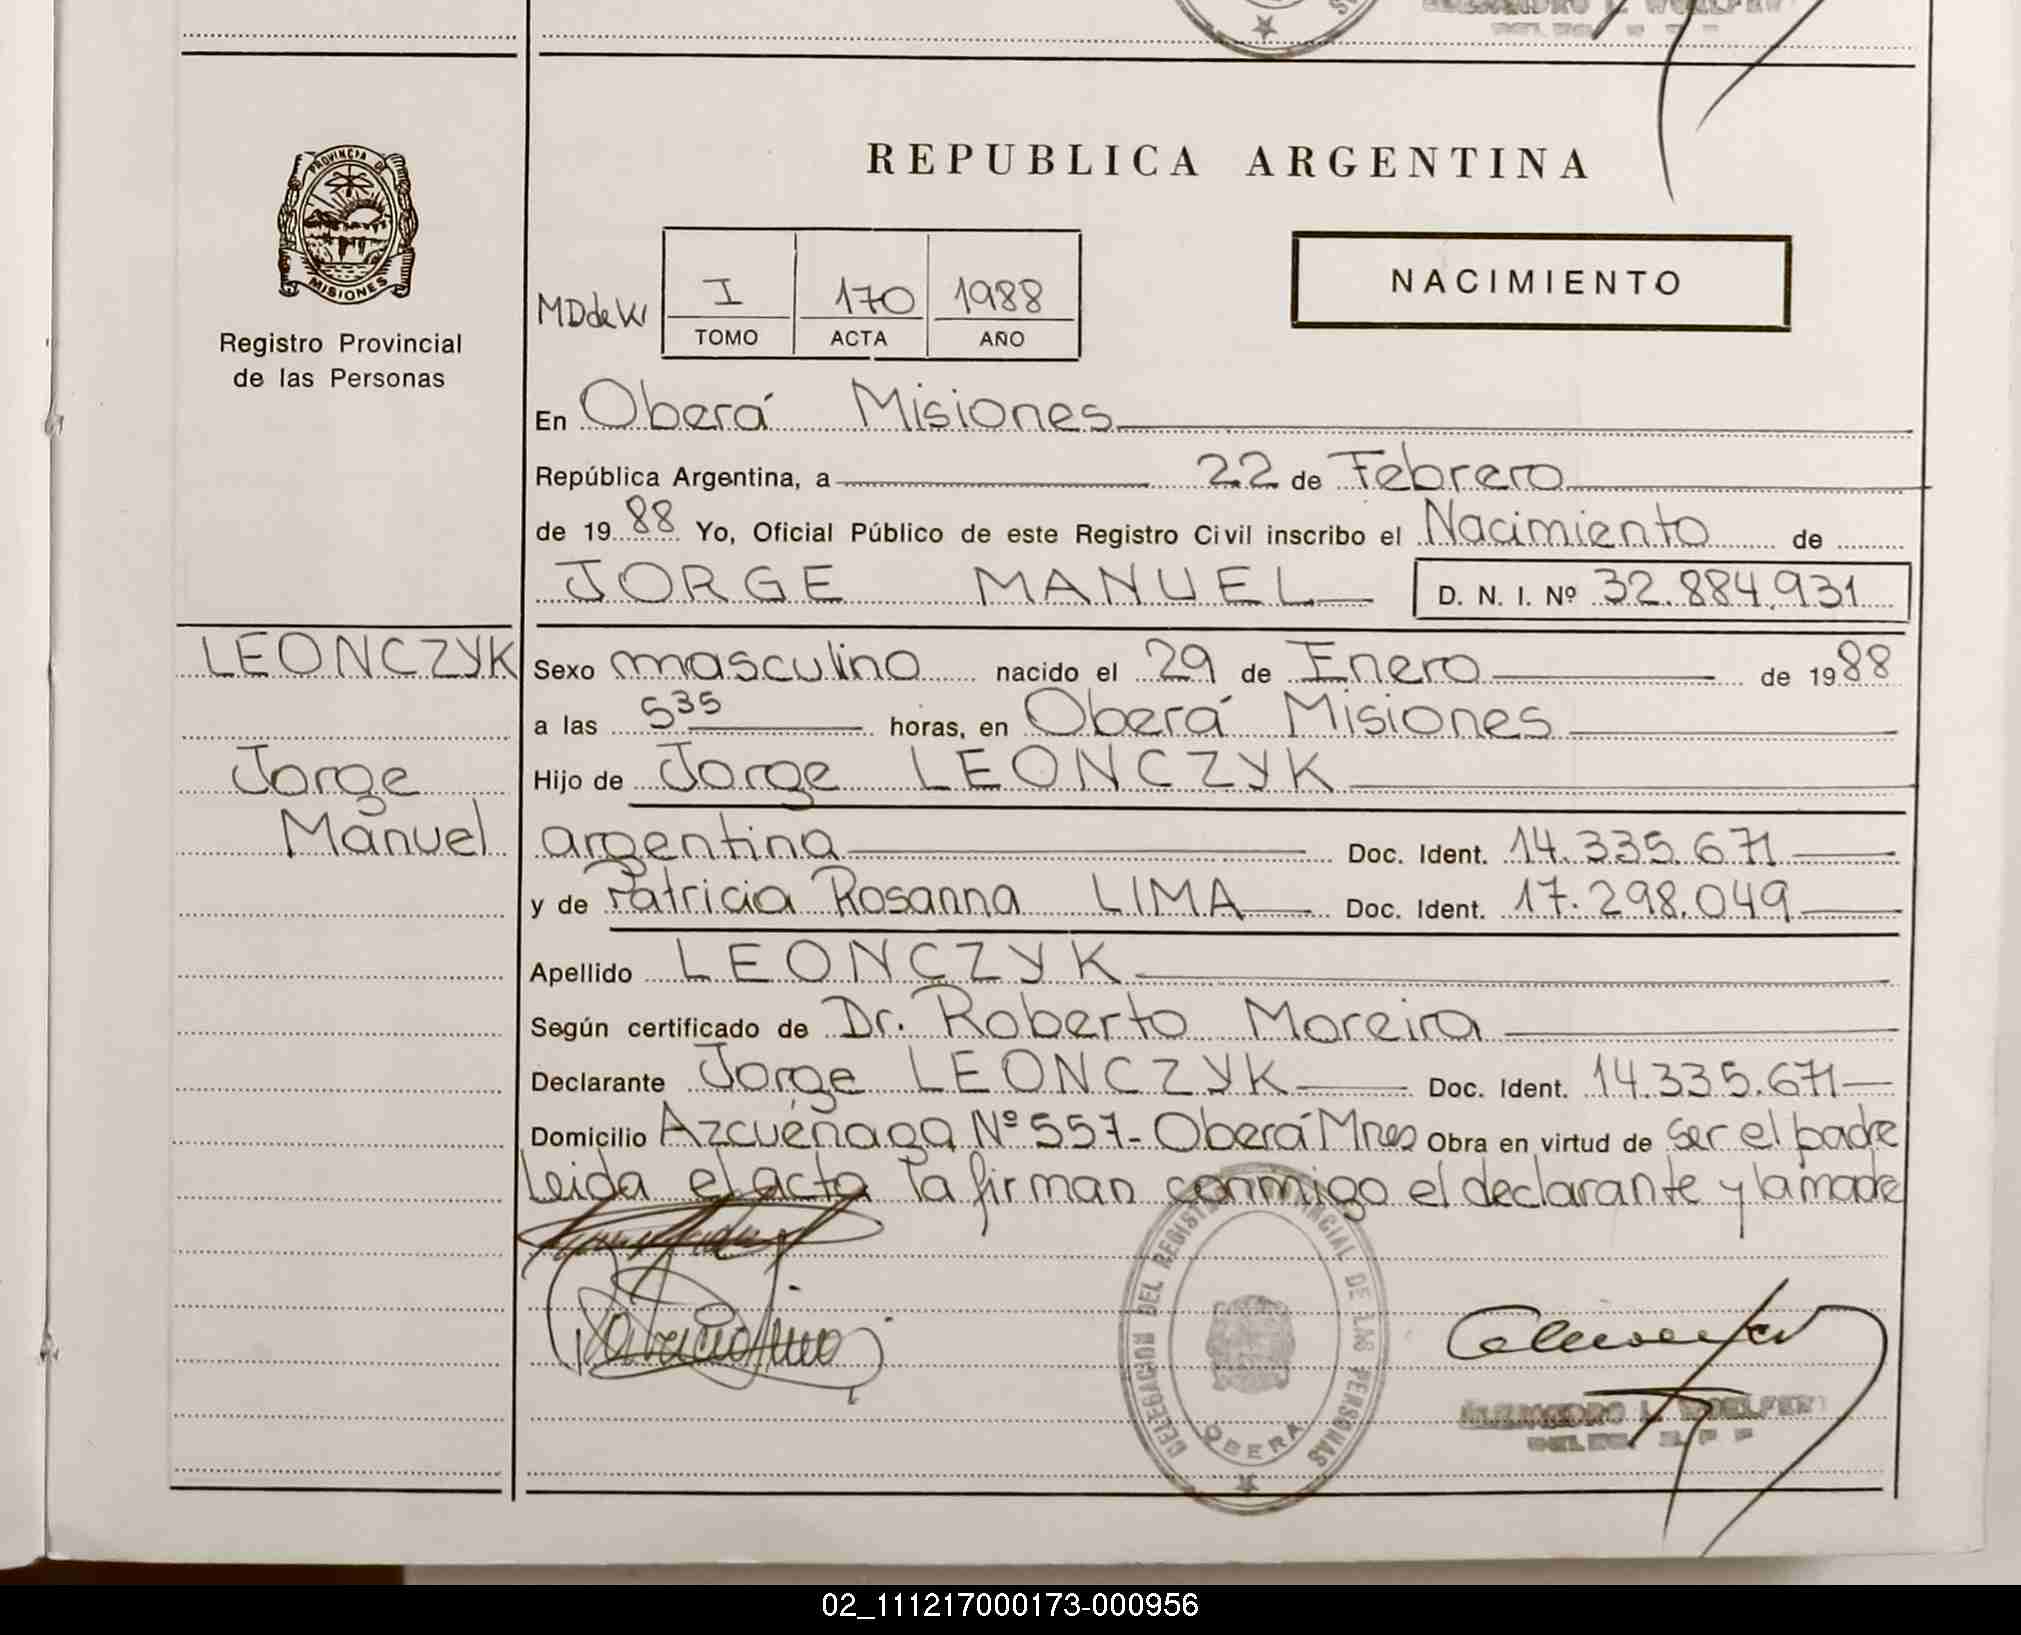 REPUBLICA ARGENTINA
PROVINCIA DE
MISIONES
Registro Provincial
de las Personas
NACIMIENTO
MDdeW
I 170 1988
TOMO ACTA AÑO
En Oberá Misiones
República Argentina, a 22 de Febrero
de 1988 Yo, Oficial Público de este Registro Civil inscribo el Nacimiento de
JORGE MANUEL D. N. I. Nº 32.884.931
LEONCZYK
Jorge
Manuel
Sexo masculino nacido el 29 de Enero de 1988
a las 5 35 horas, en Oberá Misiones
Hijo de Jorge LEONCZYK
argentina Doc. Ident. 14.335.671
y de Patricia Rosanna LIMA Doc. Ident. 17.298.049
Apellido LEONCZYK
Según certificado de Dr. Roberto Moreira
Declarante Jorge LEONCZYK Doc. Ident. 14.335.671
Domicilio Azcuénaga Nº 557- Oberá Mnes Obra en virtud de ser el padre
Leida el acta la firman conmigo el declarante y la madre
DELEGACION DEL REGISTRO PROVINCIAL DE LAS PERSONAS
OBERA
ALEJANDRO L. WOELFERT
02_111217000173-000956